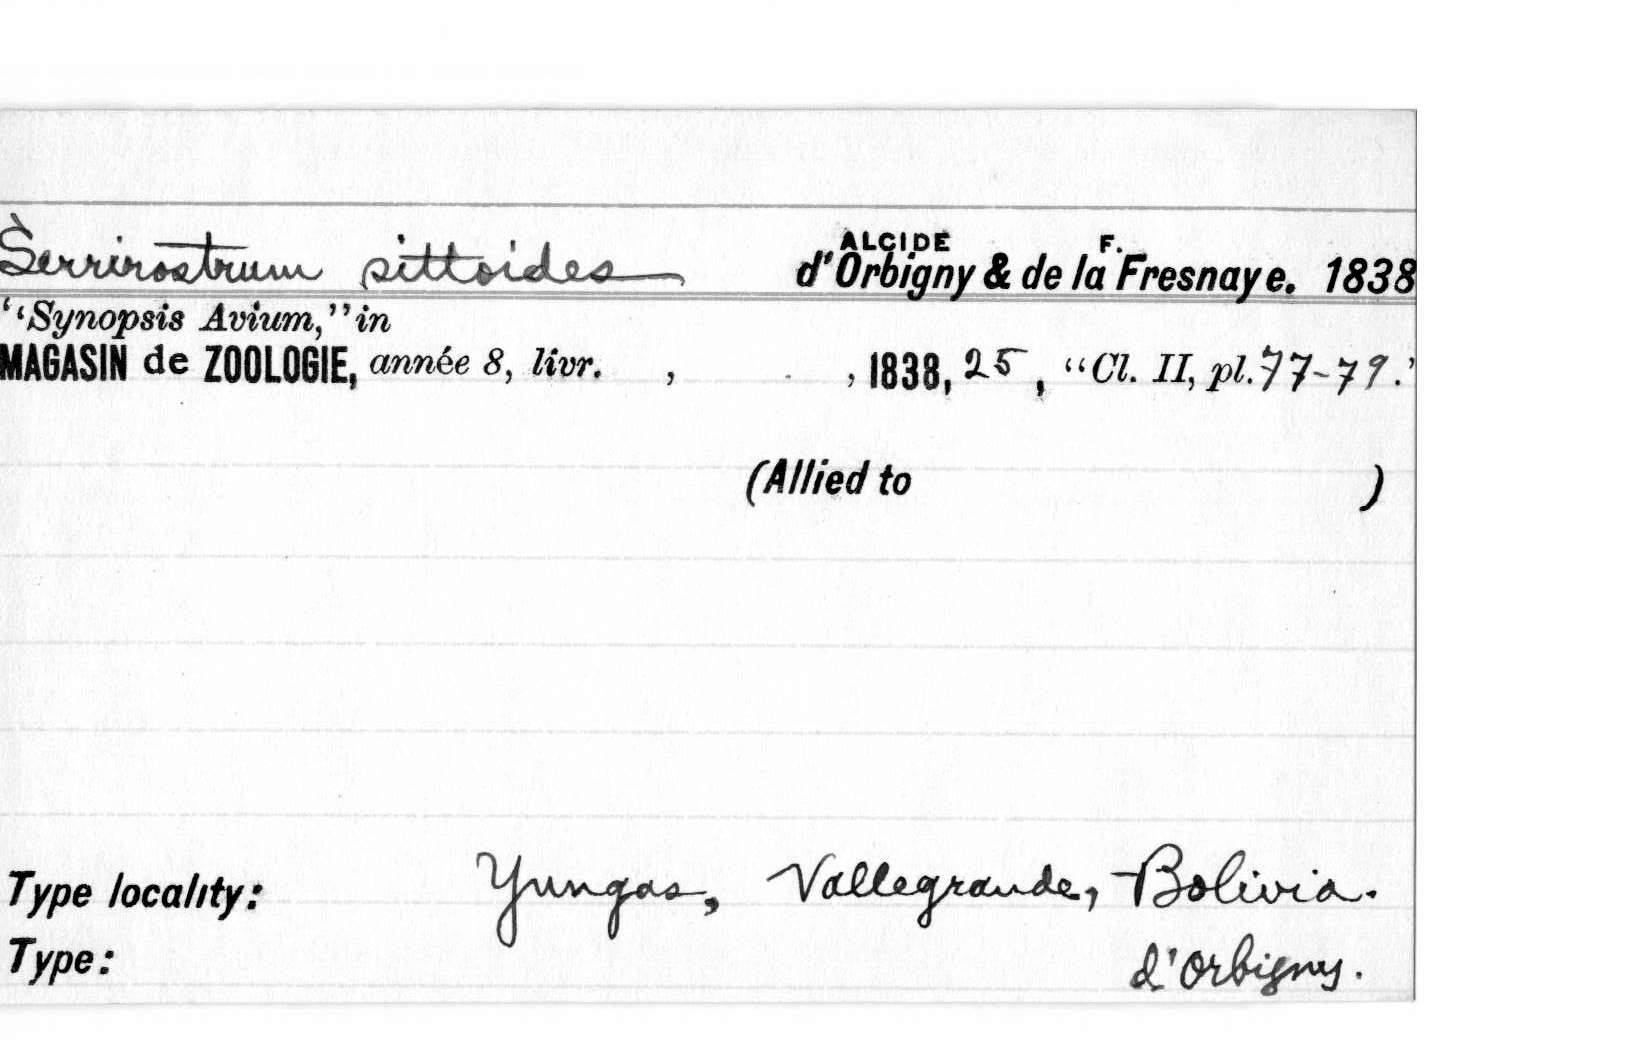 Serrirostrum sittoides ALCIDE d'Orbigny & de la F. Fresnaye. 1838
"Synopsis Avium," in
MAGASIN de ZOOLOGIE, année 8, livr. , , 1838, 25, "Cl. II, pl. 77-79."
(Allied to )
Type locality: Yungas, Vallegrande, Bolivia.
Type: d'Orbigny.